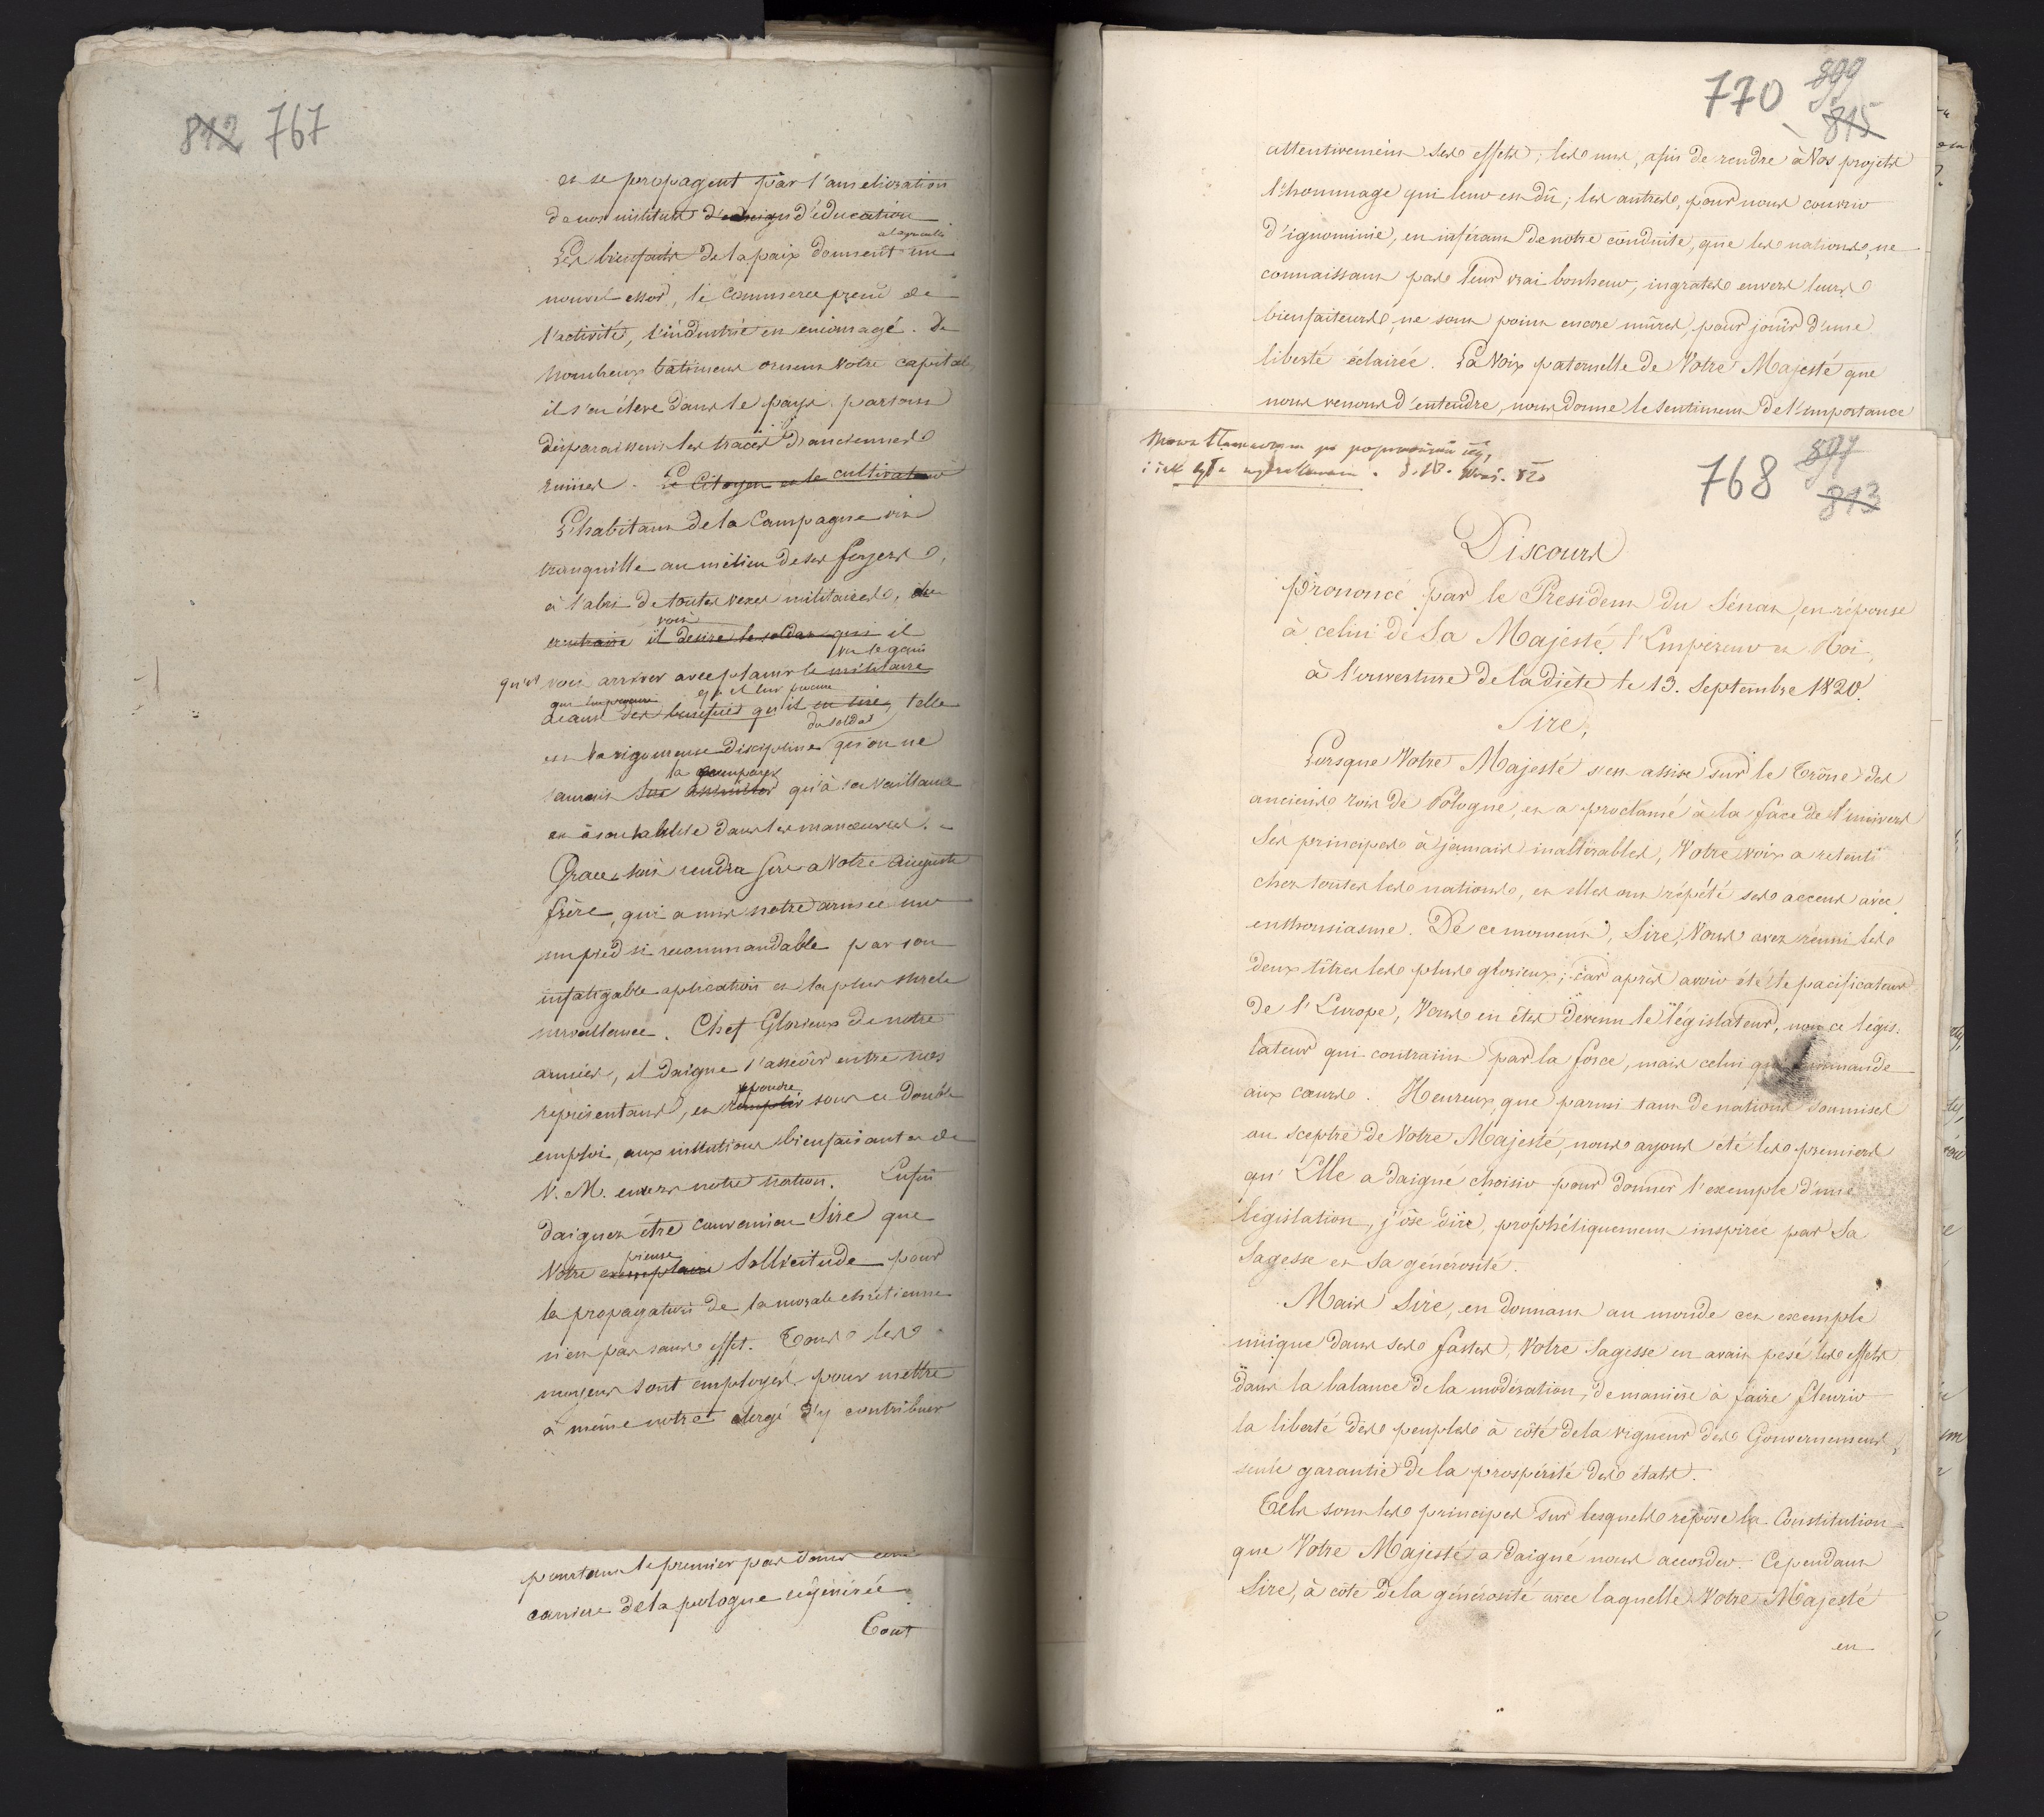 812 767
et se propagent par l'amelioration
de nos instituts d'enseign d'éducation
a l'agricult
Les bienfaits de la paix donnent un
nouvel essor, le commerce prend de
l'activité, l'industrie est encouragé. De
nombreux bâtimens ornent Votre capitale,
il s'en éleve dans le pays. partout
disparaissent les traces d'anciennes
ruines. Le Citoyen et le cultivateur
L'habitant de la Campagne vit
tranquille au milieu de ses foyers,
à l'abri de toutes vexes militaires,
voit
contraire il desire le soldat qui il
vu le gain
qu'il voit arriver avec plaisir le militaire
qu'il leur procure
des benefices qu'il en tire, telle
du soldat
est la rigoureuse discipline qu'on ne
la comparer
saurait qu'à sa vaillance
et à son habileté dans les manoeuvres.
Grace soit rendu Sire a Votre Auguste
frère, qui a mis notre armée sur
un pied si recommandable par son
infatigable aplication et la plus stricte
surveillance. Chef Glorieux de notre
armées, il daigne s'asseoir entre nos
repondre
représentans, et remplir sous ce double
emploi, aux institutions bienfaisantes de
V. M. envers notre nation. Enfin
daignez être convaincu Sire que
pieuse
Votre exemplaire Sollicitude pour
la propagation de la morale chrétienne
n'est pas sans effet. Tous les
moyens sont employés pour mettre
à même notre clergé d'y contribuer
pourtant le premier pas dans cette
carriere de la pologne régénérée
Tout
770 899
815
attentivement ses effets; les uns, afin de rendre à Vos projets
l'hommage qui leur est dû; les autres, pour nous couvrir
d'ignominie, en inférant de notre conduite, que les nations, ne
connaissant pas leur vrai bonheur, ingrates envers leurs
bienfaiteurs, ne sont point encore mûres, pour jouïr d'une
liberté éclairée. La Voix paternelle de Votre Majesté que
nous venons d'entendre, nous donne le sentiment de l'importance
Mowa
768 897
813
Discours
prononcé par le President du Sénat, en réponse
à celui de Sa Majesté, l'Empereur et Roi,
à l'ouverture de la diète le 13. Septembre 1820.
Sire,
Lorsque Votre Majesté s'est assise sur le Trône des
anciens rois de Pologne, et a proclamé à la face de l'univers
Ses principes à jamais inaltérables, Votre voix a retenti
chez toutes les nations, et elles ont répété ses accens avec
enthousiasme. De ce moment, Sire, Vous avez réuni les
deux titres les plus glorieux; car après avoir été le pacificateur
de l'Europe, Vous en êtes devenu le législateur, non ce légis-
lateur qui contraint par la force, mais celui qui commande
aux cœurs. Heureux, que parmi tant de nations soumises
au sceptre de Votre Majesté, nous ayons été les premiers
qu'Elle a daigné choisir pour donner l'exemple d'une
legislation, j'ôse dire, prophétiquement inspirée par Sa
Sagesse et Sa générosité.
Mais Sire, en donnant au monde cet exemple
unique dans ses fastes, Votre Sagesse en avait pesé les effets
dans la balance de la modération, de manière à faire fleurir
la liberté des peuples à côté de la vigueur des Gouvernemens,
seule garantie de la prospérité des états.
Tels sont les principes sur lesquels repose la Constitution
que Votre Majesté a daigné nous accorder. Cependant
Sire, à côté de la générosité avec laquelle Votre Majesté
en